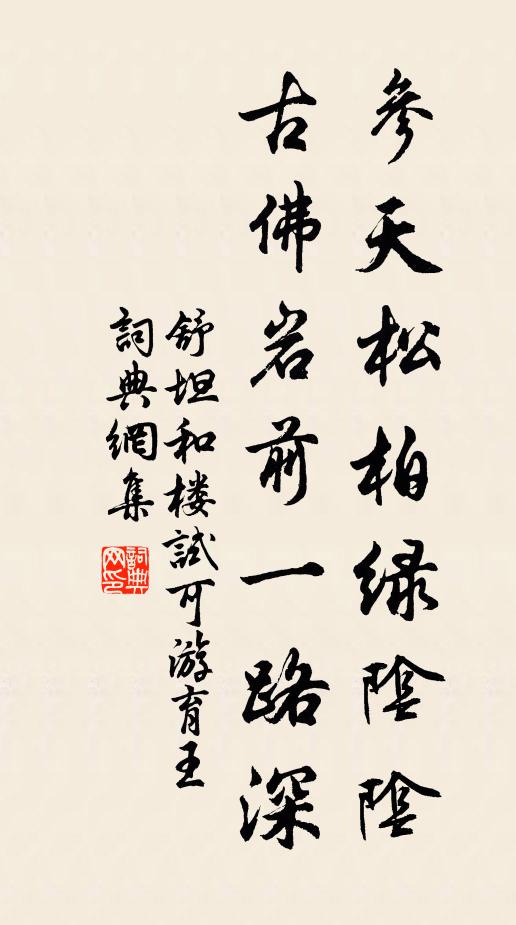 參天松柏绿陰陰
古佛岩前一路深
舒坦和楼試可游育王
詞典網集
詞典网印